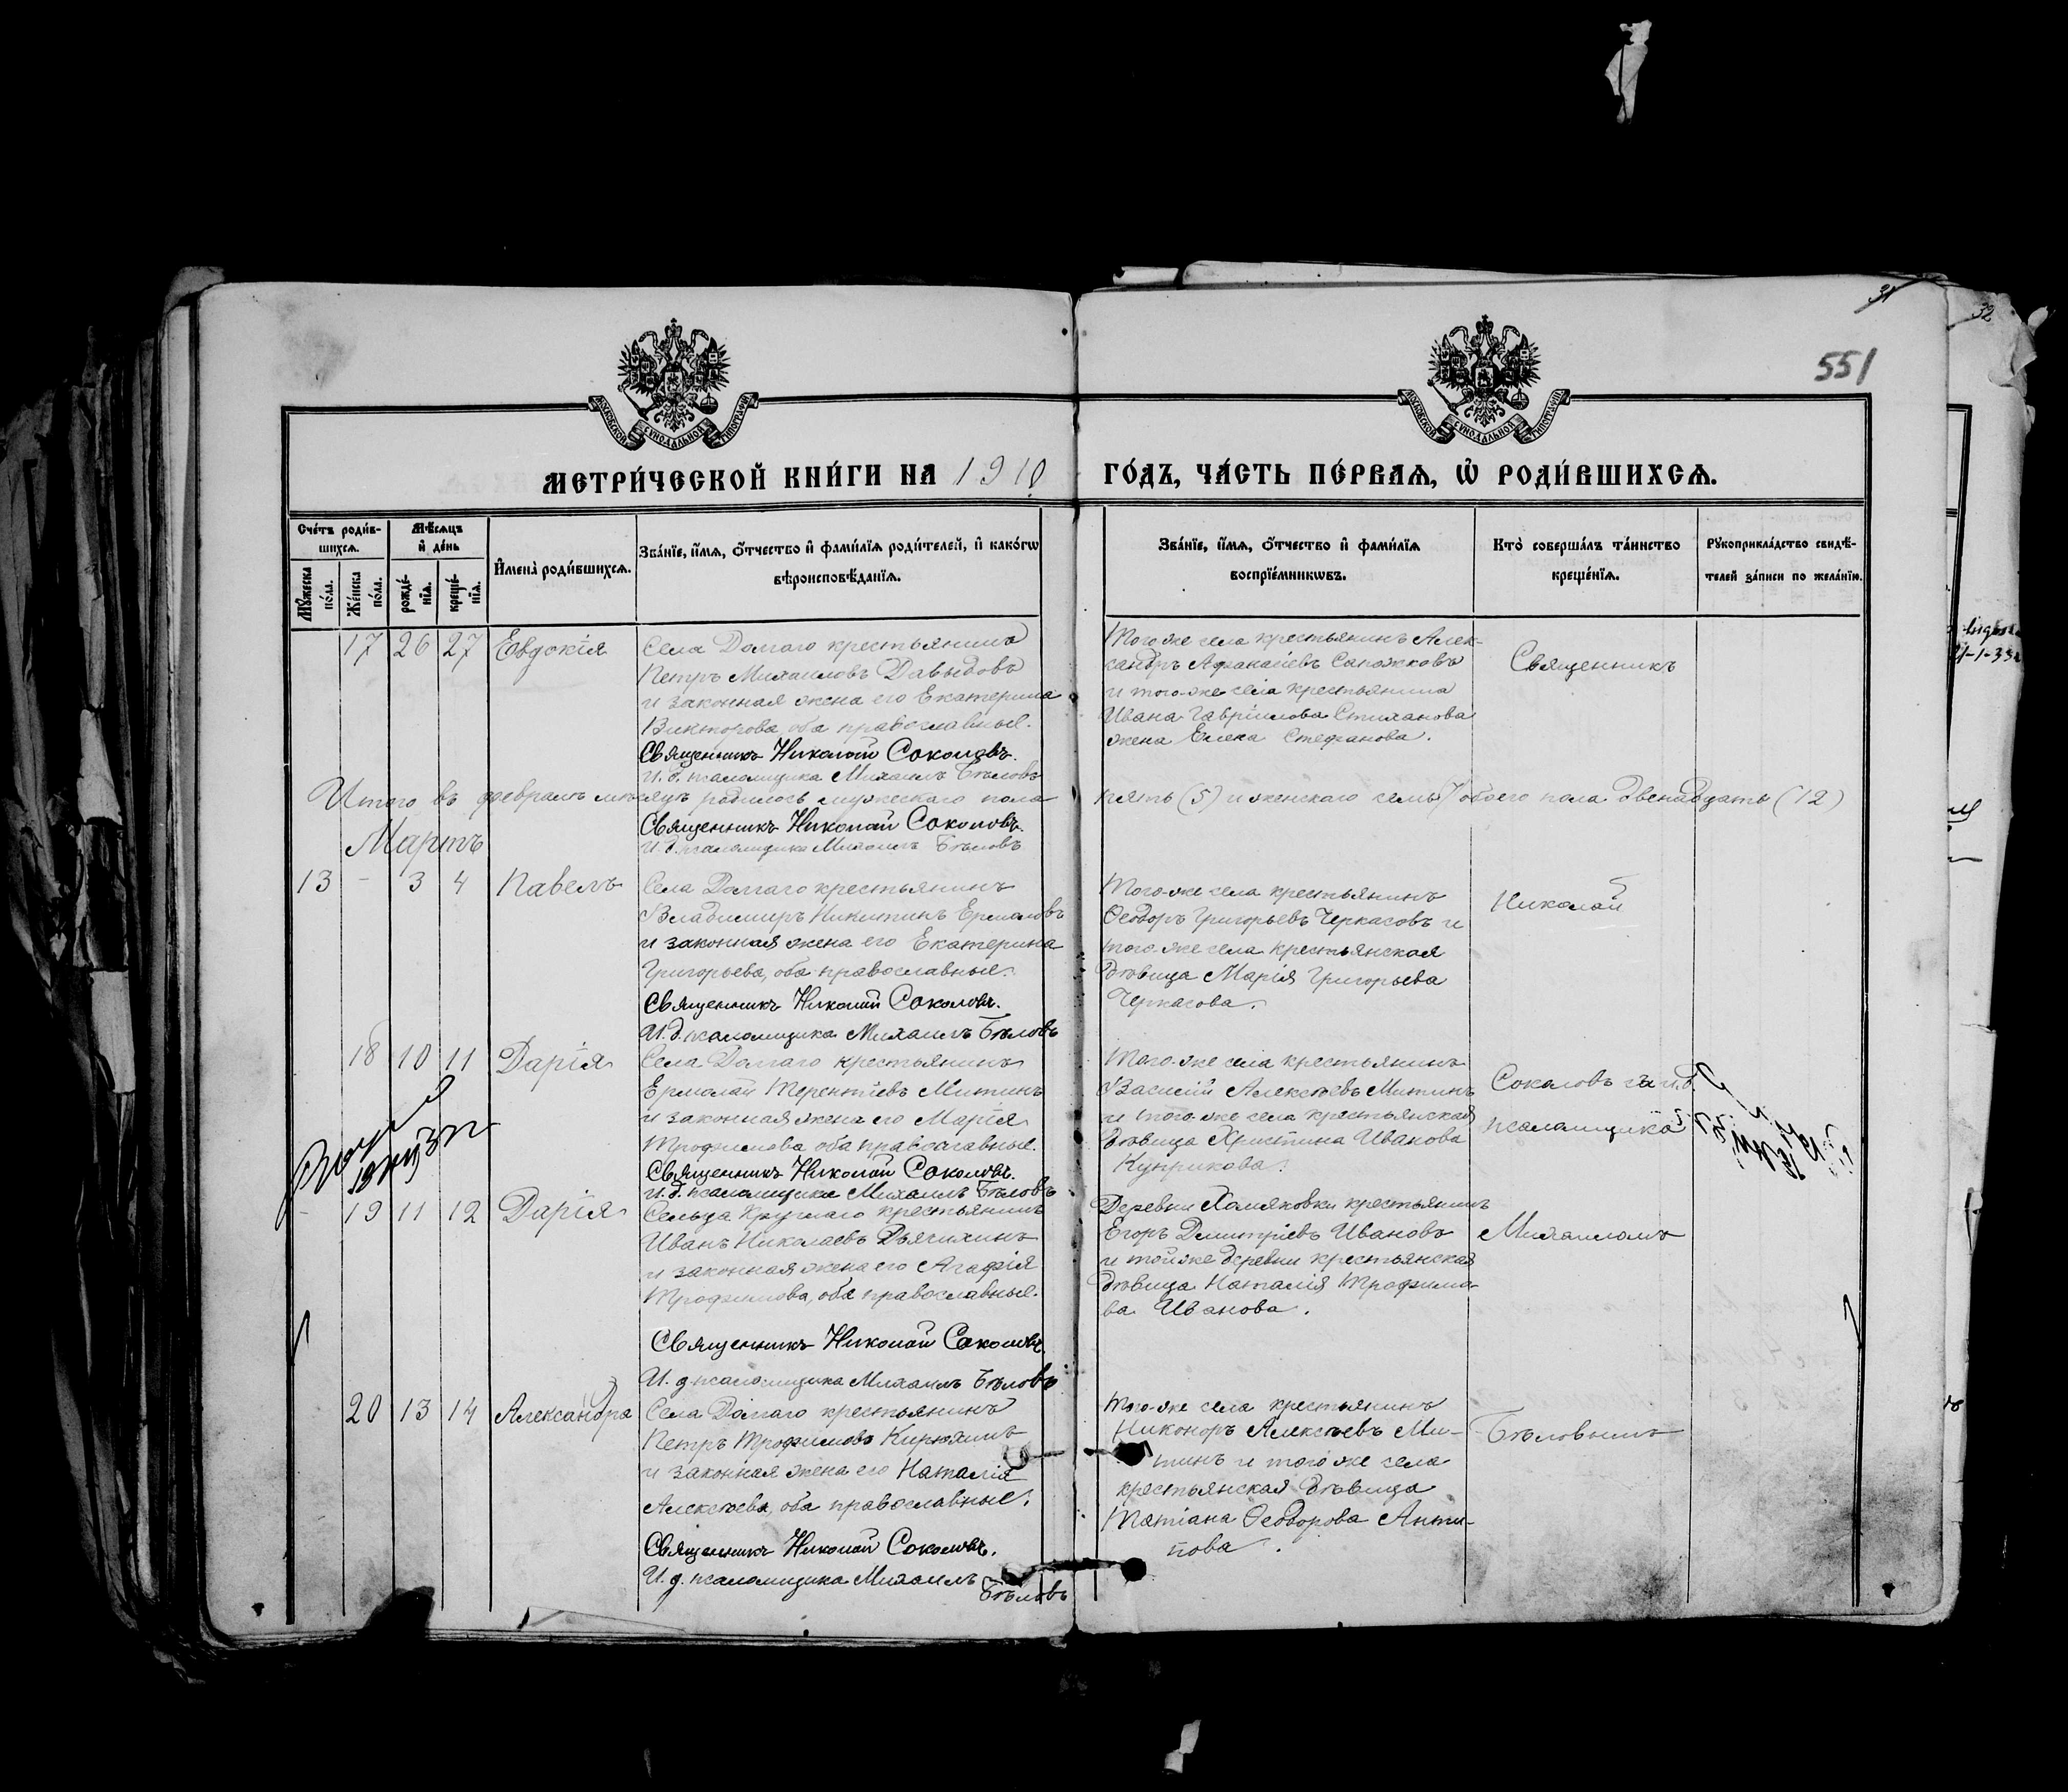 31
32
551
МОСКОВСКОЙ СѴНОДАЛЬНОЙ ТИПОГРАФІИ
МОСКОВСКОЙ СѴНОДАЛЬНОЙ ТИПОГРАФІИ
МЕТРИ́ЧЕСКОЙ КНИ́ГИ НА 1910 ГО́ДЪ, ЧА́СТЬ ПЕ́РВАѦ, Ѡ҆ РОДИ́ВШИХСѦ.
Сче́тъ роди́в-
шихсѧ.
Мѣ́сѧцъ
и҆ де́нь
Мꙋ́жеска по́ла.
Же́нска по́ла.
рожде́-
нїѧ.
креще́-
нїѧ.
И҆мена̀ роди́вшихсѧ.
Зва́нїе, и҆́мѧ, ѻ҆́тчество и҆ фами́лїѧ роди́телей, и҆ како́гѡ
вѣроисповѣ́данїѧ.
Зва́нїе, и҆́мѧ, ѻ҆́тчество и҆ фами́лїѧ
воспрїе́мникѡвъ.
Кто̀ соверша́лъ та́инство
креще́нїѧ.
Рꙋкоприкла́дство свидѣ́-
телей за́писи по жела́нїю.
17 26 27 Евдокія
Села Долгаго крестьянинъ
Петръ Михаиловъ Давыдовъ
и законная жена его Екатерина
Викторова, оба православные.
Священникъ Николай Соколовъ.
И. д. псаломщика Михаилъ Бѣловъ
Того-же села крестьянинъ Алек-
сандръ Афанасіевъ Сапожковъ
и того-же села крестьянина
Ивана Гавріилова Стиханова
жена Елена Стефанова.
Священникъ
Итого въ февралѣ мѣсяцѣ родилось мужескаго пола пять (5) и женскаго семь (7 обоего пола двенадцать (12)
Священникъ Николай Соколовъ.
И. д. псаломщика Михаилъ Бѣловъ
Мартъ
13 - 3 4 Павелъ
Села Долгаго крестьянинъ
Владимиръ Никитинъ Ермаловъ
и законная жена его Екатерина
Григорьева, оба православные.
Священникъ Николай Соколовъ.
И. д. псаломщика Михаилъ Бѣловъ
Того-же села крестьянинъ
Ѳеодоръ Григорьевъ Черкасовъ и
того-же села крестьянская
дѣвица Марія Григорьева
Черкасова.
Николай
18 10 11 Дарія
Села Долгаго крестьянинъ
Ермолай Терентіевъ Митинъ
и законная жена его Марія
Трофимова оба православные.
Священникъ Николай Соколовъ.
И. д. псаломщика Михаилъ Бѣловъ
Того-же села крестьянинъ
Василій Алексѣевъ Митинъ
и того-же села крестьянская
дѣвица Христина Иванова
Куприкова.
Соколовъ съ и. д.
псаломщика
- 19 11 12 Дарія
Сельца Круглаго крестьянинъ
Иванъ Николаевъ Дьячихинъ
и законная жена его Агафія
Трофимова, оба православные.
Священникъ Николай Соколовъ.
И. д псаломщика Михаилъ Бѣловъ
Деревни Хомяковки крестьянинъ
Егоръ Димитріевъ Ивановъ
и той же деревни крестьянская
дѣвица Наталія Трофимо-
ва Иванова.
Михаиломъ
20 13 14 Александра
Села Долгаго крестьянинъ
Петръ Трофимовъ Кирюхинъ
и законная жена его Наталія
Алексѣева, оба православные.
Священникъ Николай Соколовъ.
И. д. псаломщика Михаилъ
Бѣловъ
Того-же села крестьянинъ
Никоноръ Алексѣевъ Ми-
тинъ и того же села
крестьянская дѣвица
Татіана Ѳеодорова Анти-
пова.
Бѣловымъ